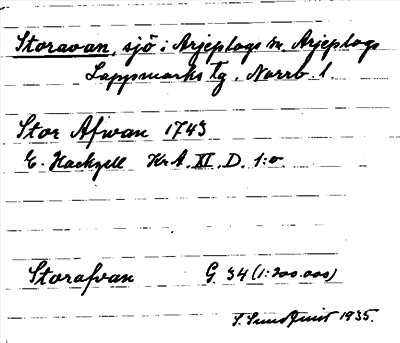 Storavan, sjö i Arjeplogs sn. Arjeplogs
Lappmarks Tg, Norrb. l.
Stor Afwan 1743
E. Hackzell Kr A. XI. D. 1:o.
Storafvan G. 34 (1:200.000)
S. Sundquist 1935.